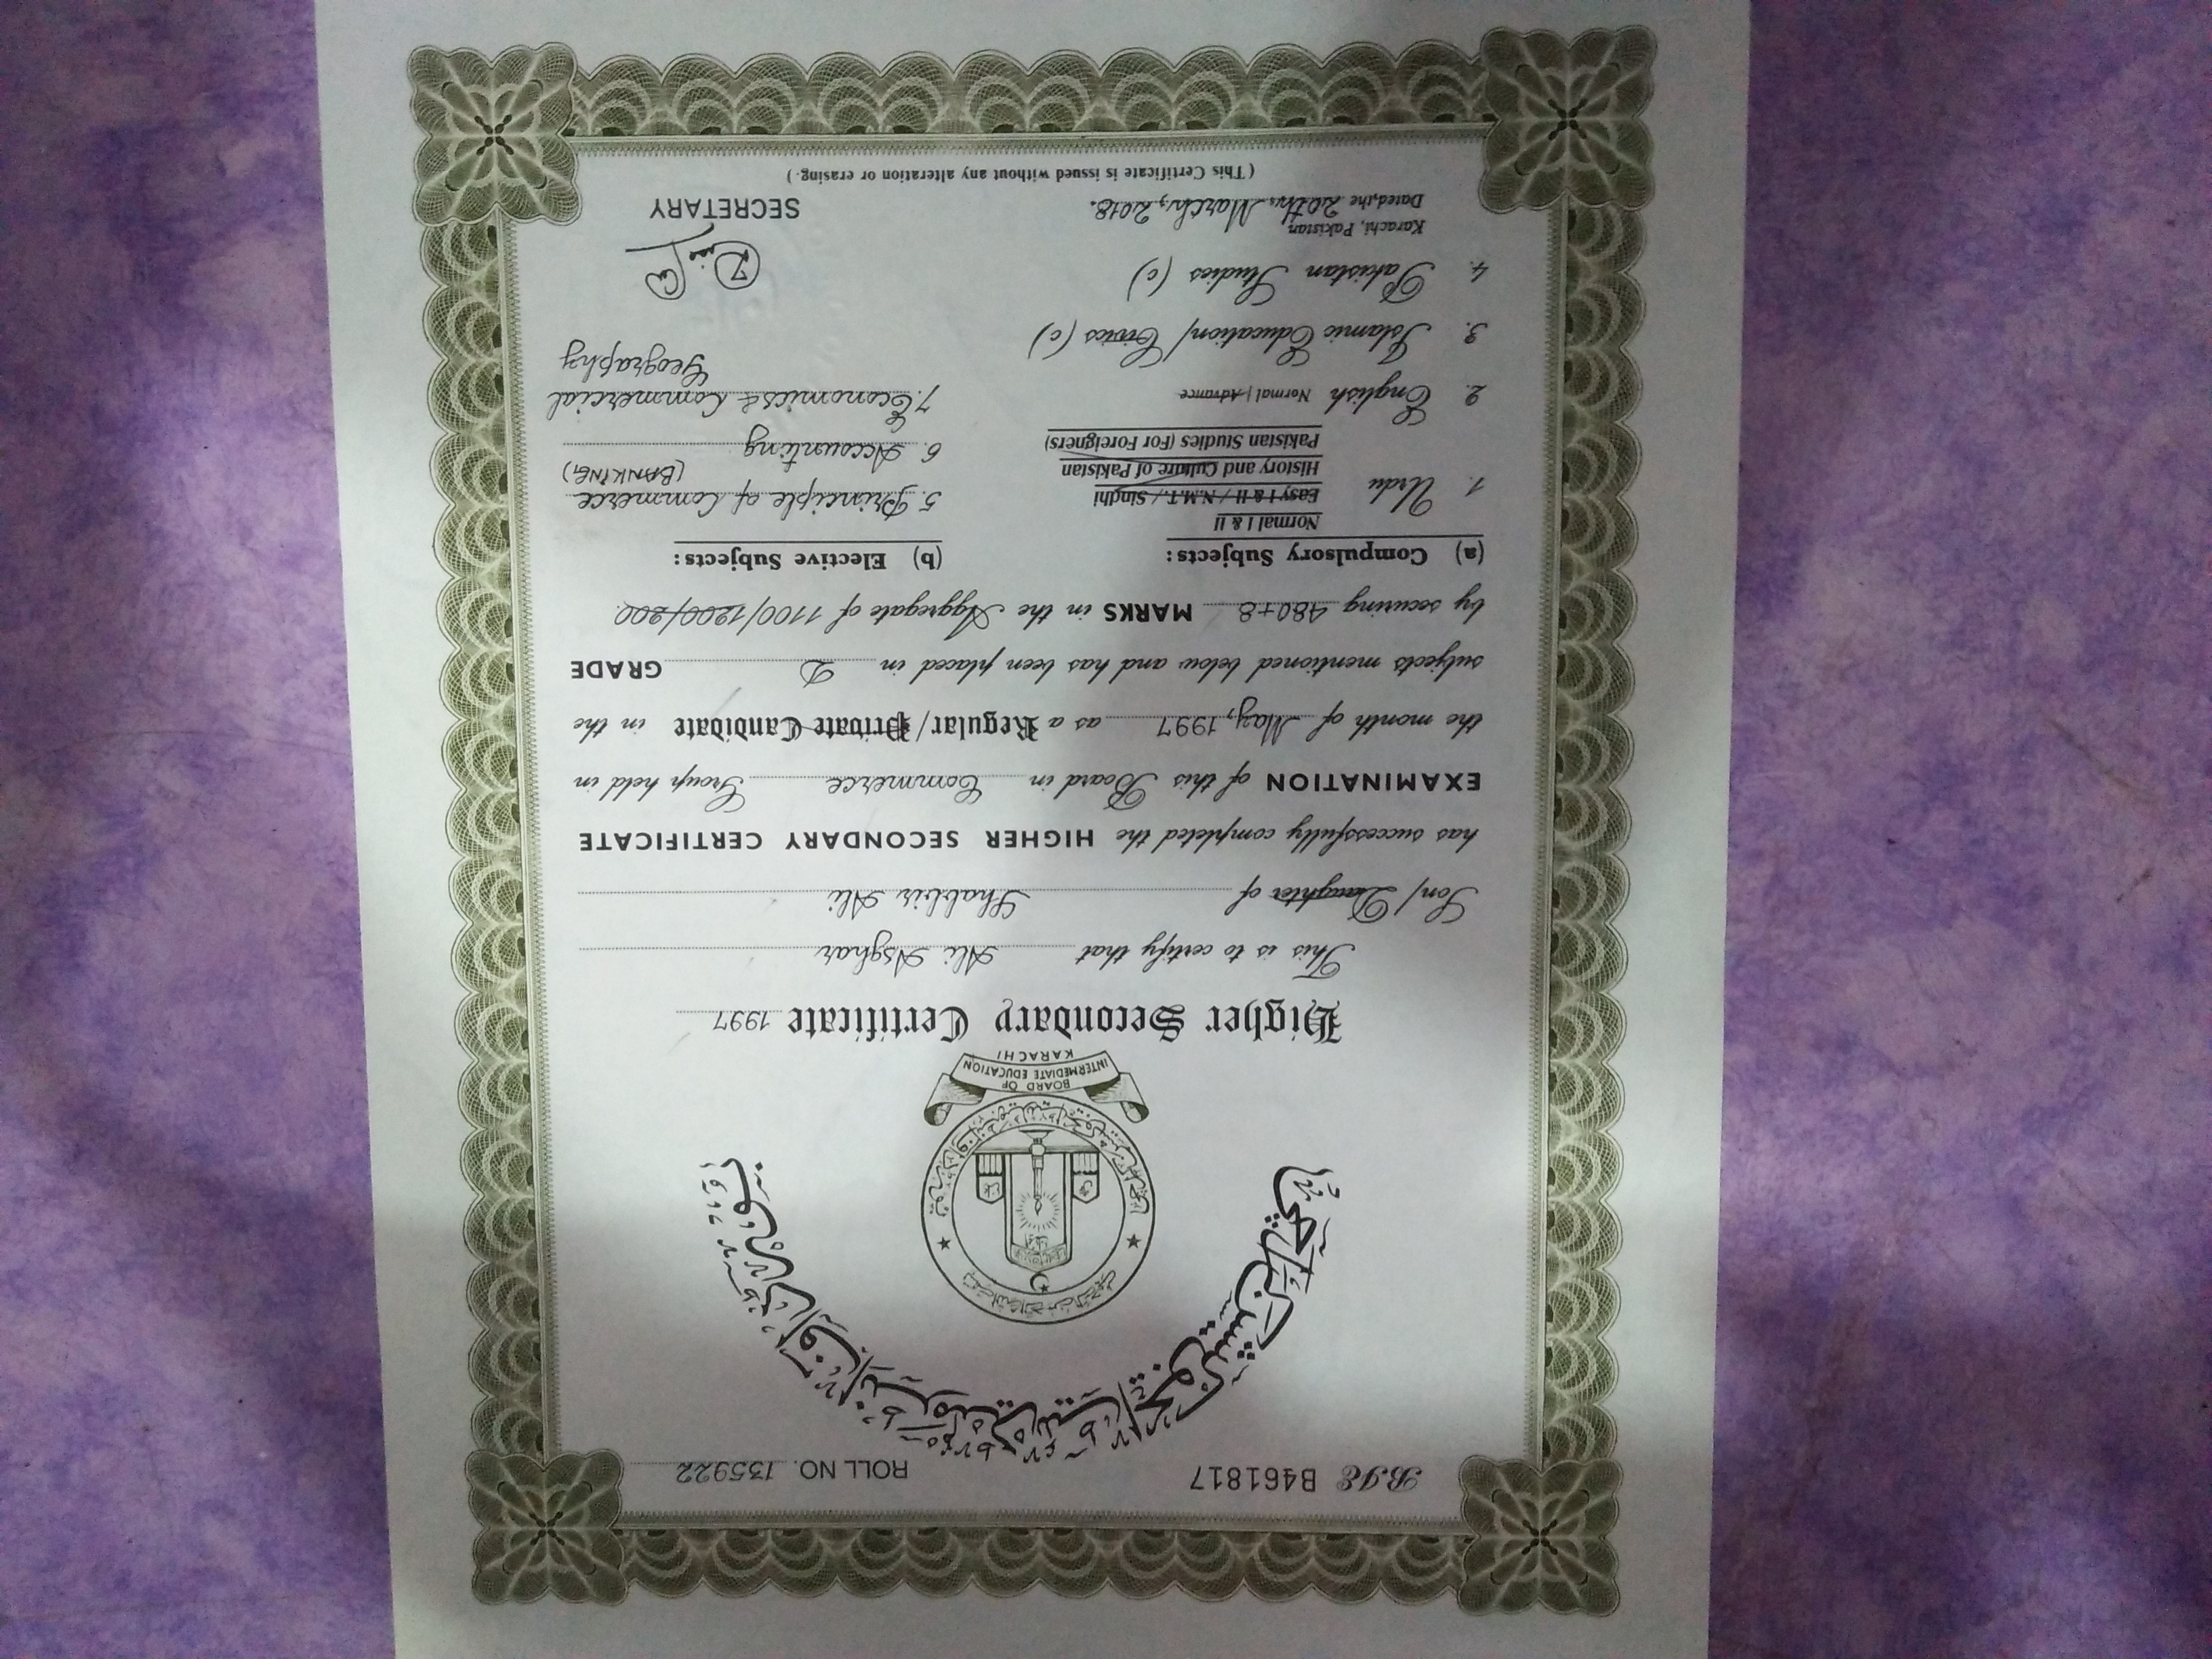 BIE B461817 ROLL NO. 135922
بورڈ آف انٹرمیڈیٹ ایجوکیشن کراچی
BOARD OF
INTERMEDIATE EDUCATION
KARACHI
Higher Secondary Certificate 1997
This is to certify that Ali Asghar
Son/ Daughter of Shabbir Ali
has successfully completed the HIGHER SECONDARY CERTIFICATE
EXAMINATION of this Board in Commerce Group held in
the month of May, 1997 as a Regular/ Private Candidate in the
subjects mentioned below and has been placed in D GRADE
by securing 480+8 MARKS in the Aggregate of 1100/1200/200.
(a) Compulsory Subjects:
Normal I & II
1. Urdu Easy I & II / N.M.T. / Sindhi
History and Culture of Pakistan
Pakistan Studies (For Foreigners)
2. English Normal / Advance
3. Islamic Education/ Civics (c)
4. Pakistan Studies (c)
(b) Elective Subjects:
5. Principle of Commerce
(BANKING)
6. Accounting
7. Economics & Commercial
Geography
Karachi, Pakistan
Dated,the 20th, March, 2018.
SECRETARY
(This Certificate is issued without any alteration or erasing.)